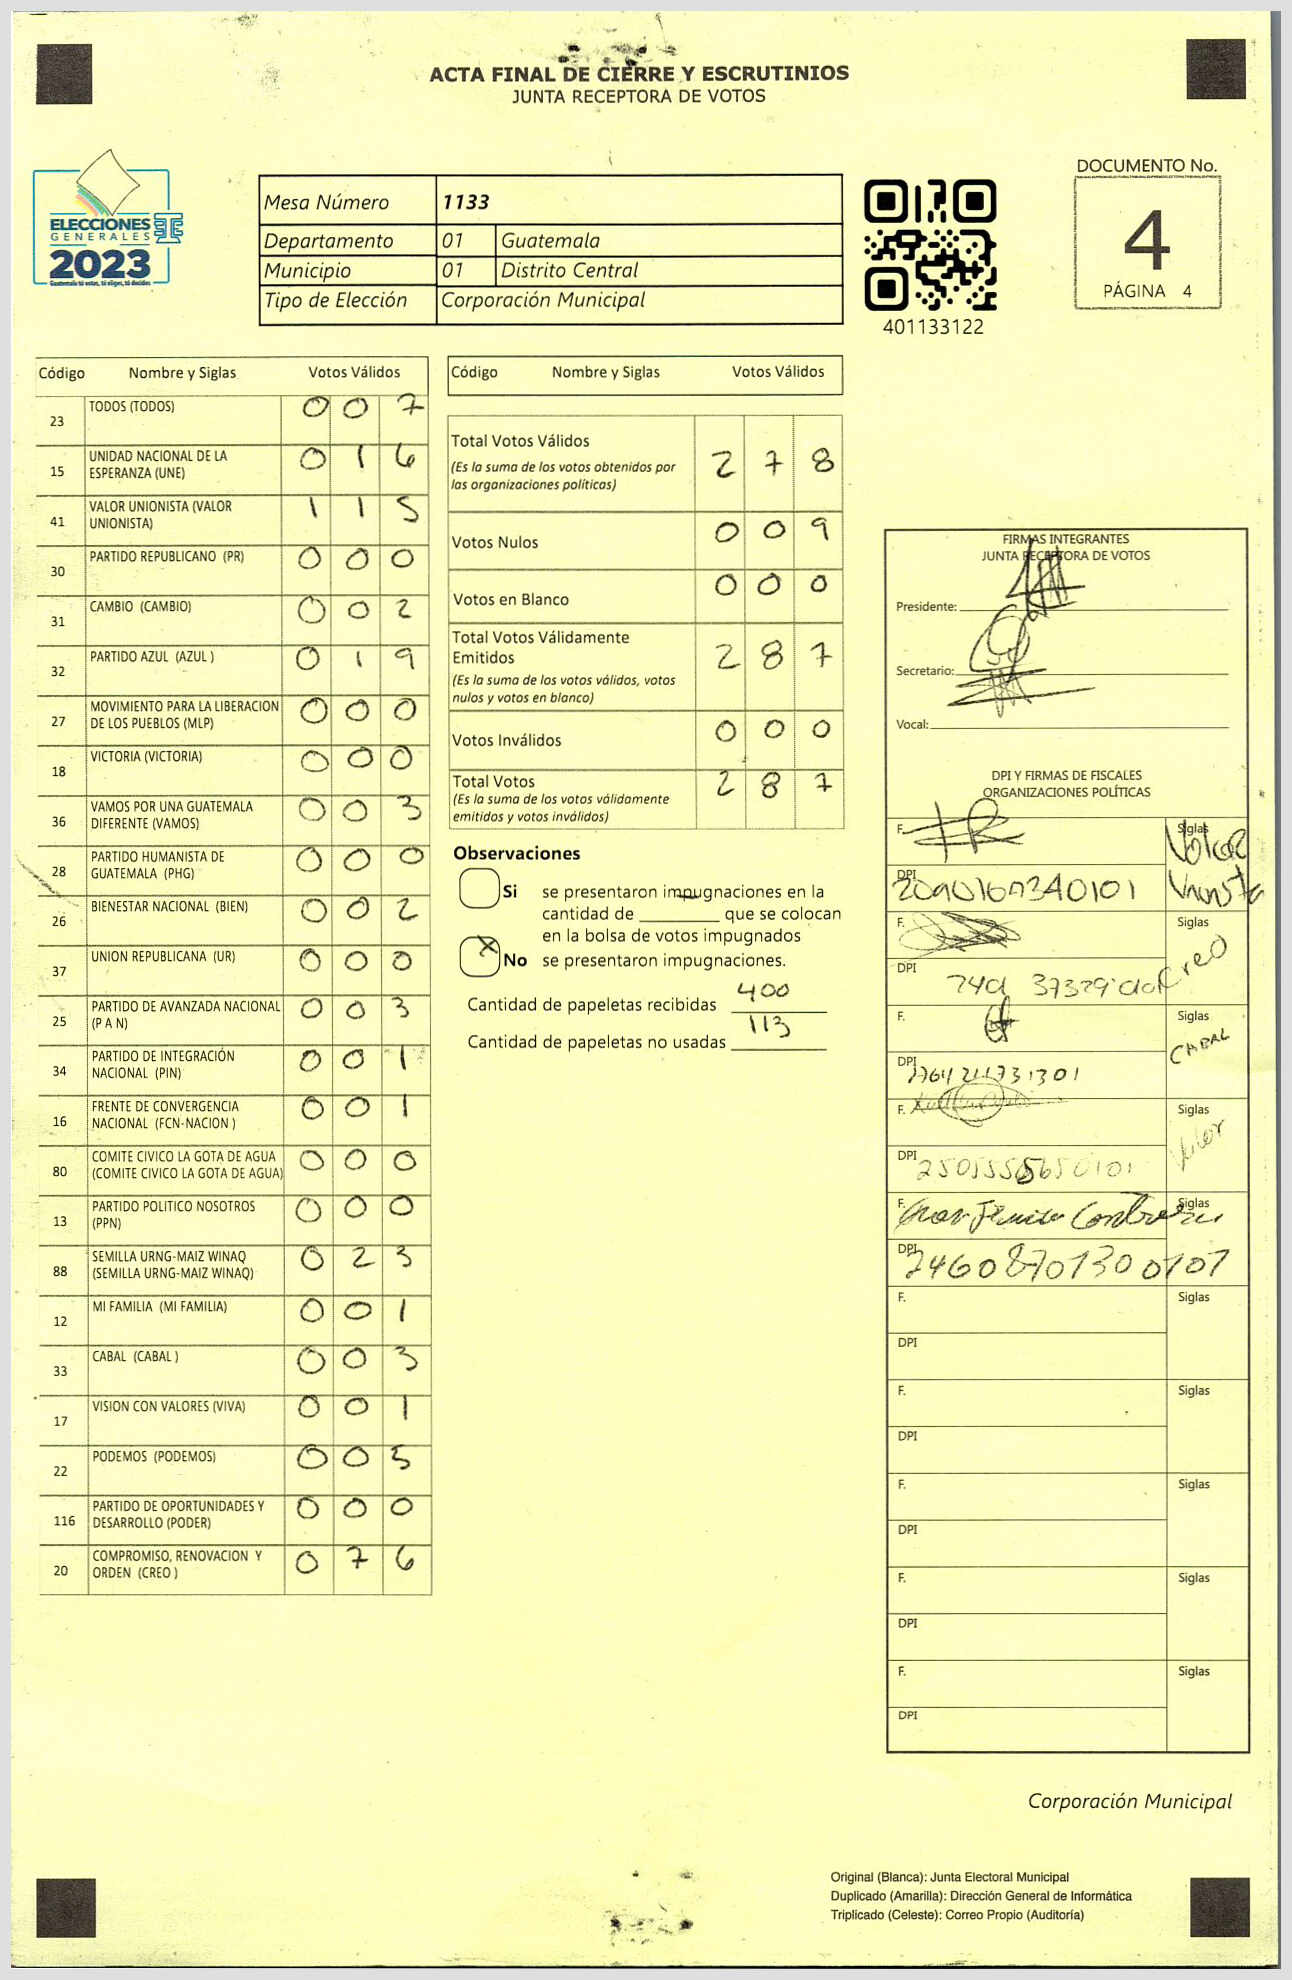 ACTA FINAL DE CIERRE Y ESCRUTINIOS
JUNTA RECEPTORA DE VOTOS
ELECCIONES
GENERALES
2023
Guatemala tú votas, tú eliges, tú decides
Mesa Número 1133
Departamento 01 Guatemala
Municipio 01 Distrito Central
Tipo de Elección Corporación Municipal
401133122
DOCUMENTO No.
4
PÁGINA 4
Código Nombre y Siglas Votos Válidos
23 TODOS (TODOS) 0 0 7
15 UNIDAD NACIONAL DE LA ESPERANZA (UNE) 0 1 6
41 VALOR UNIONISTA (VALOR UNIONISTA) 1 1 5
30 PARTIDO REPUBLICANO (PR) 0 0 0
31 CAMBIO (CAMBIO) 0 0 2
32 PARTIDO AZUL (AZUL ) 0 1 9
27 MOVIMIENTO PARA LA LIBERACION DE LOS PUEBLOS (MLP) 0 0 0
18 VICTORIA (VICTORIA) 0 0 0
36 VAMOS POR UNA GUATEMALA DIFERENTE (VAMOS) 0 0 3
28 PARTIDO HUMANISTA DE GUATEMALA (PHG) 0 0 0
26 BIENESTAR NACIONAL (BIEN) 0 0 2
37 UNION REPUBLICANA (UR) 0 0 0
25 PARTIDO DE AVANZADA NACIONAL (P A N) 0 0 3
34 PARTIDO DE INTEGRACIÓN NACIONAL (PIN) 0 0 1
16 FRENTE DE CONVERGENCIA NACIONAL (FCN-NACION ) 0 0 1
80 COMITE CIVICO LA GOTA DE AGUA (COMITE CIVICO LA GOTA DE AGUA) 0 0 0
13 PARTIDO POLITICO NOSOTROS (PPN) 0 0 0
88 SEMILLA URNG-MAIZ WINAQ (SEMILLA URNG-MAIZ WINAQ) 0 2 3
12 MI FAMILIA (MI FAMILIA) 0 0 1
33 CABAL (CABAL ) 0 0 3
17 VISION CON VALORES (VIVA) 0 0 1
22 PODEMOS (PODEMOS) 0 0 5
116 PARTIDO DE OPORTUNIDADES Y DESARROLLO (PODER) 0 0 0
20 COMPROMISO, RENOVACION Y ORDEN (CREO ) 0 7 6
Código Nombre y Siglas Votos Válidos
Total Votos Válidos 2 7 8
(Es la suma de los votos obtenidos por
las organizaciones políticas)
Votos Nulos 0 0 9
Votos en Blanco 0 0 0
Total Votos Válidamente
Emitidos 2 8 7
(Es la suma de los votos válidos, votos
nulos y votos en blanco)
Votos Inválidos 0 0 0
Total Votos 2 8 7
(Es la suma de los votos válidamente
emitidos y votos inválidos)
Observaciones
Si se presentaron impugnaciones en la
cantidad de ________ que se colocan
en la bolsa de votos impugnados
X No se presentaron impugnaciones.
Cantidad de papeletas recibidas 400
Cantidad de papeletas no usadas 113
FIRMAS INTEGRANTES
JUNTA RECEPTORA DE VOTOS
Presidente:
Secretario:
Vocal:
DPI Y FIRMAS DE FISCALES
ORGANIZACIONES POLÍTICAS
F. Siglas Valor
DPI Unionista
F. Siglas
DPI Creo
F. Siglas
DPI CABAL
F. Siglas
DPI
F. Siglas
DPI 24608701300101
F. Siglas
DPI
F. Siglas
DPI
F. Siglas
DPI
F. Siglas
DPI
F. Siglas
DPI
Corporación Municipal
Original (Blanca): Junta Electoral Municipal
Duplicado (Amarilla): Dirección General de Informática
Triplicado (Celeste): Correo Propio (Auditoría)